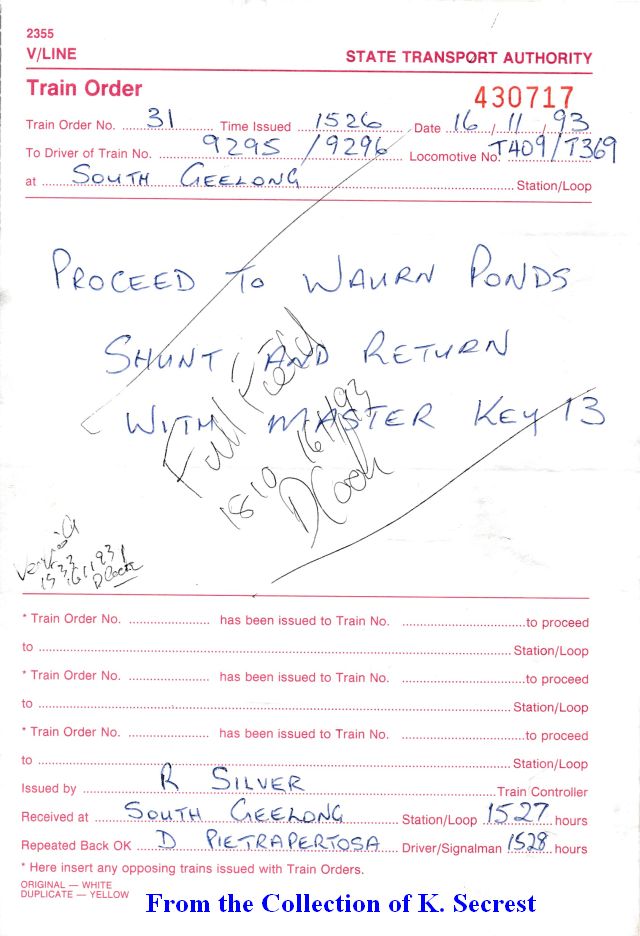 2355
V/LINE STATE TRANSPORT AUTHORITY
Train Order 430717
Train Order No. 31 Time Issued 1526 Date 16/11/93
To Driver of Train No. 9295/9296 Locomotive No. T409/T369
at SOUTH GEELONG Station/Loop
PROCEED TO WAURN PONDS
SHUNT AND RETURN
WITH MASTER KEY 13
1810 16/11/93
D Cook
1533
16/11/93
D Cook
* Train Order No. has been issued to Train No. to proceed
to Station/Loop
* Train Order No. has been issued to Train No. to proceed
to Station/Loop
* Train Order No. has been issued to Train No. to proceed
to Station/Loop
Issued by R SILVER Train Controller
Received at SOUTH GEELONG Station/Loop 1527 hours
Repeated Back OK D PIETRAPERTOSA Driver/Signalman 1528 hours
* Here insert any opposing trains issued with Train Orders.
ORIGINAL — WHITE
DUPLICATE — YELLOW
From the Collection of K. Secrest